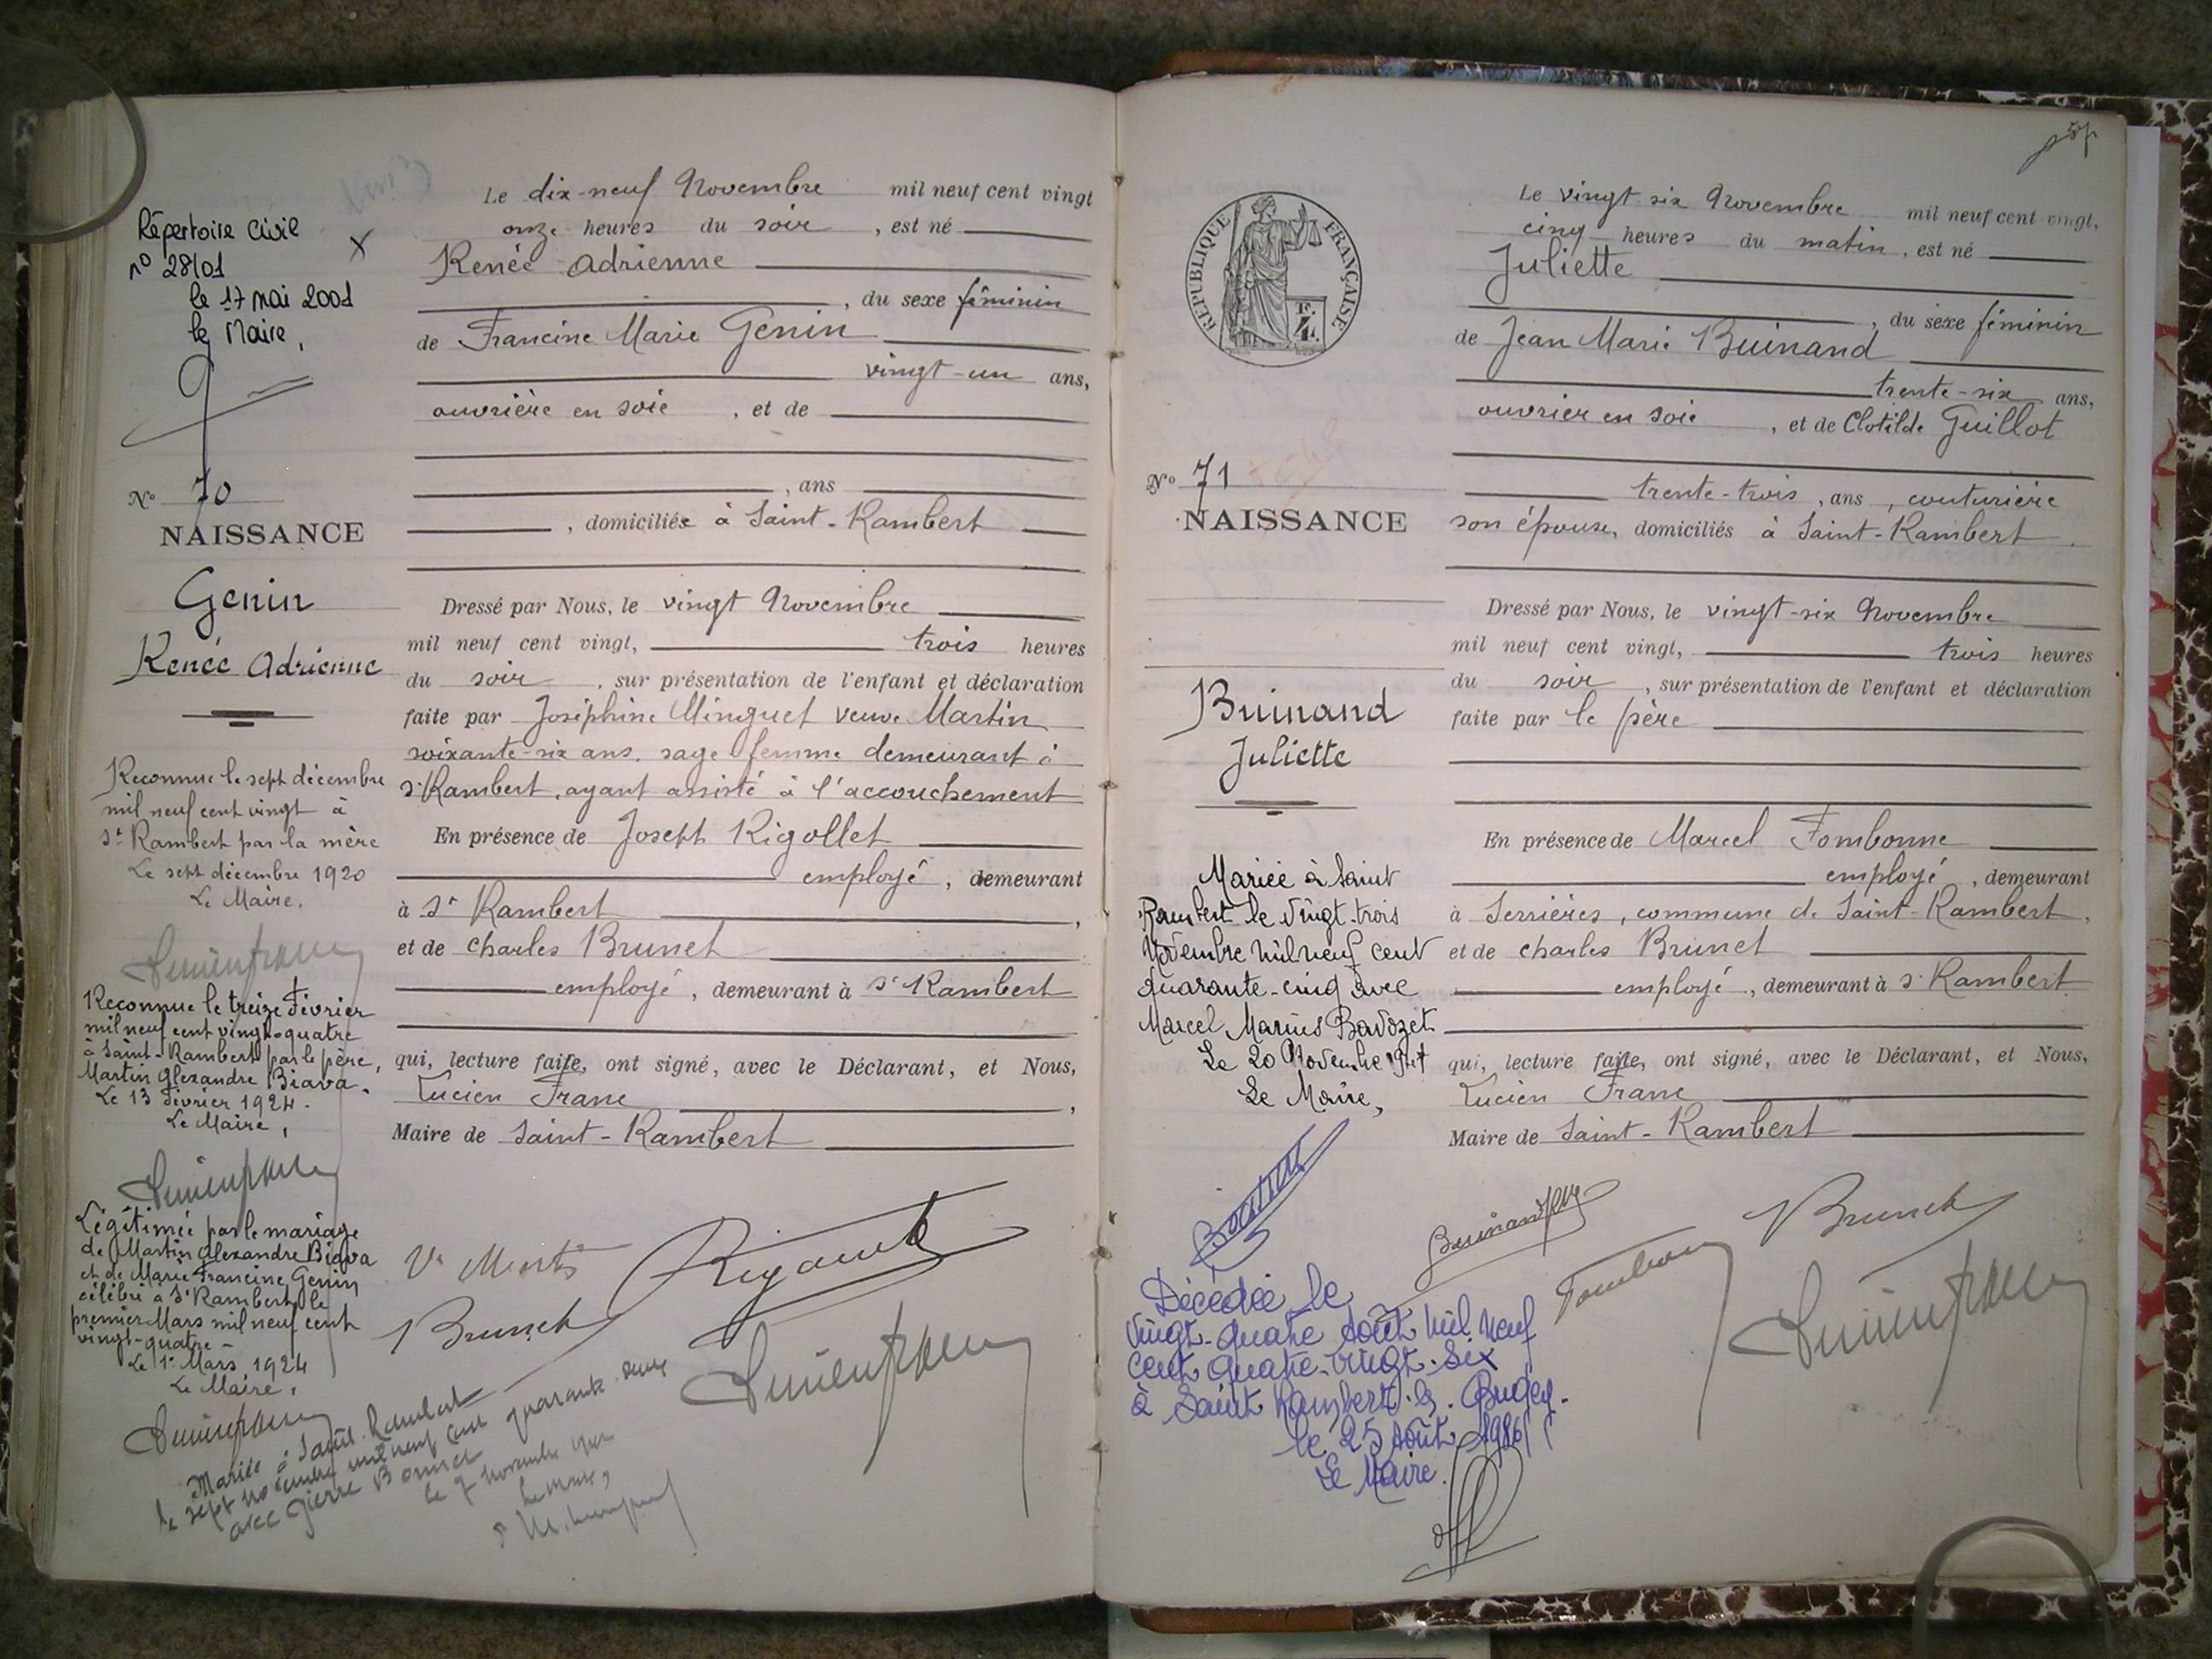 Répertoire Civil
n° 28/01
le 17 mai 2001
le Maire,
N° 70
NAISSANCE
Genin
Renée Adrienne
Reconnue le sept décembre
mil neuf cent vingt à
St Rambert par la mère
Le sept décembre 1920
Le Maire,
Reconnue le treize Février
mil neuf cent vingt-quatre
à Saint-Rambert par le père,
Martin Alexandre Biava.
Le 13 Février 1924.
Le Maire,
Légitimée par le mariage
de Martin Alexandre Biava
et de Marie Francine Genin
célébré à St Rambert le
premier Mars mil neuf cent
vingt-quatre -
Le 1er Mars 1924
Le Maire,
Mariée à Saint Rambert
le sept novembre mil neuf cent quarante
avec Pierre
le 7 novembre
le maire,
Le dix-neuf Novembre mil neuf cent vingt
onze heures du soir, est né
Renée Adrienne
, du sexe féminin
de Francine Marie Genin
vingt-un ans,
ouvrière en soie, et de
, ans
, domiciliée à Saint-Rambert
Dressé par Nous, le vingt Novembre
mil neuf cent vingt, trois heures
du soir, sur présentation de l'enfant et déclaration
faite par Joséphine Minguet veuve Martin
soixante-six ans, sage femme demeurant à
St Rambert, ayant assisté à l'accouchement
En présence de Joseph Rigollet
employé, demeurant
à St Rambert,
et de Charles Brunet
employé, demeurant à St Rambert
qui, lecture faite, ont signé, avec le Déclarant, et Nous,
Lucien Franc,
Maire de Saint-Rambert
Brunet
Lucien Franc
RÉPUBLIQUE FRANÇAISE
N° 71
NAISSANCE
Buinand
Juliette
Mariée à Saint
Rambert le vingt-trois
Novembre mil neuf cent
quarante-cinq avec
Marcel Marius Bavozet
Le 20 Novembre
Le Maire,
Décédée le
vingt-quatre Août mil neuf
cent quatre-vingt-six
à Saint Rambert-en-Bugey.
le 25 Août 1986
Le Maire.
Le vingt six Novembre mil neuf cent vingt,
cinq heures du matin, est né
Juliette
, du sexe féminin
de Jean Marie Buinand
trente-six ans,
ouvrier en soie, et de Clotilde Guillot
trente-trois, ans, couturière
son épouse, domiciliés à Saint-Rambert.
Dressé par Nous, le vingt-six Novembre
mil neuf cent vingt, trois heures
du soir, sur présentation de l'enfant et déclaration
faite par le père
En présence de Marcel Fombonne
employé, demeurant
à Serrières, commune de Saint-Rambert,
et de Charles Brunet
employé, demeurant à St Rambert
qui, lecture faite, ont signé, avec le Déclarant, et Nous,
Lucien Franc
Maire de Saint-Rambert
Buinand
Brunet
Lucien Franc